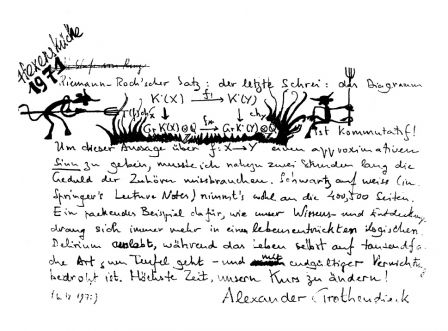 Hexenküche
1971
Riemann-Roch'scher Satz: der letzte Schrei: das Diagramm
K˙(X) f! K˙(Y)
ch ch
Gr K˙(X)⊗Q f* Gr K˙(Y)⊗Q
ist kommutatif!
Um dieser Aussage über f: X → Y einen approximativen
Sinn zu geben, musste ich nahezu zwei Stunden lang die
Geduld der Zuhörer missbrauchen. Schwartz auf weiss (in
Springer's Lecture Notes) nimmt's wohl an die 400, 500 Seiten.
Ein packendes Beispiel dafür, wie unser Wissens- und Entdeckungs-
drang sich immer mehr in einem lebensentrückten logischen
Delirium auslebt, während das Leben selbst auf tausendfa-
che Art zum Teufel geht - und mit endgültiger Vernichtung
bedroht ist. Höchste Zeit, unsern Kurs zu ändern!
Alexander Grothendieck